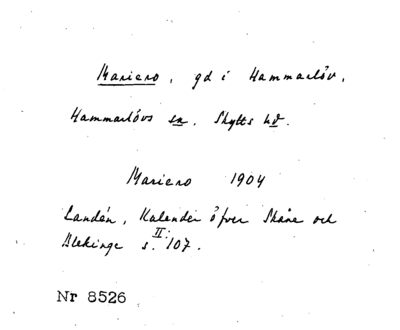 Mariero, gd i Hammarlöv,
Hammarlövs sn. Skytts hd.
Mariero 1904
Landén, Kalender öfver Skåne och
Blekinge II: s. 107.
Nr 8526